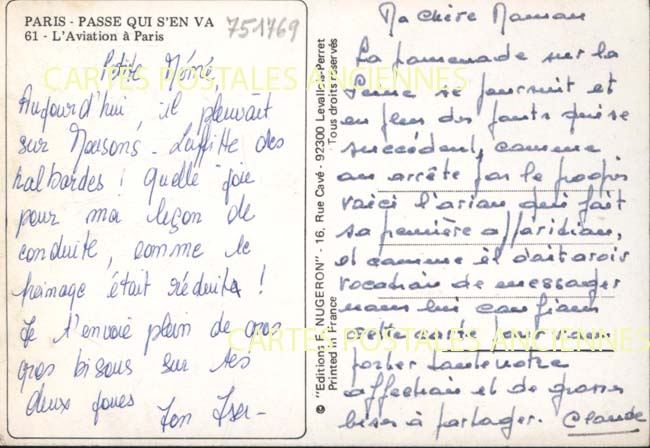 PARIS - PASSE QUI S'EN VA
61 - L'Aviation à Paris
751769
Petite Mémé,
Aujourd'hui, il pleuvait
sur Maisons-Laffitte des
halbardes ! quelle joie
pour ma leçon de
conduite, comme le
freinage était réduit !
Je t'envoie plein de gros
gros bisous sur tes
deux joues Ton
© "Editions F. NUGERON" - 16, Rue Cavé - 92300 Levallois-Perret
Printed in France
Tous droits réservés
Ma chère Maman
La promenade sur la
Seine se poursuit et
en plus des ponts qui se
succèdent, comme
on arrête par le progrès
voici l'avion qui fait
sa première apparition,
et comme il doit avoir
vocation de messager
nous lui confions
cette carte pour vous
porter toute notre
affection et de grosses
bises à partager. Claude
CARTES POSTALES ANCIENNES
CARTES POSTALES ANCIENNES